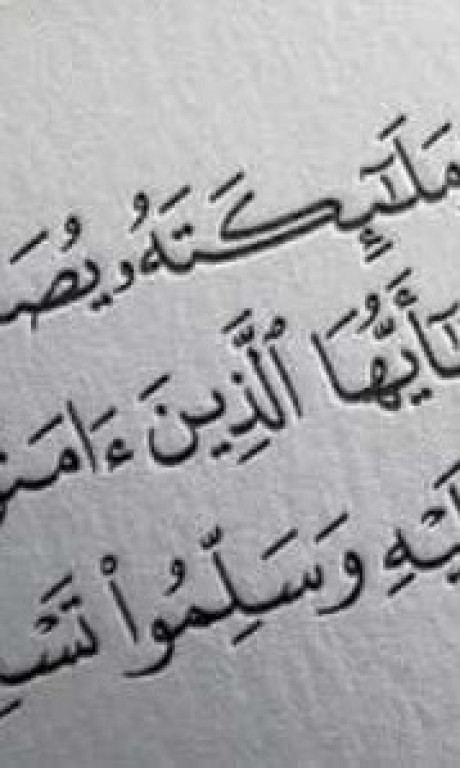 مَلَٰٓئِكَتَهُۥ يُصَ
يَٰٓأَيُّهَا ٱلَّذِينَ ءَامَنُ
يْهِ وَسَلِّمُوا۟ تَسْلِ